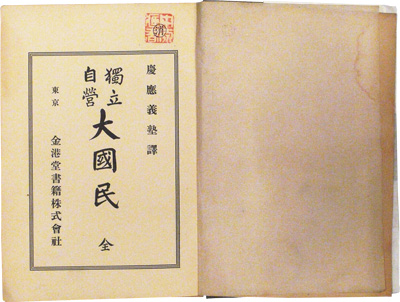 慶應義塾譯
獨立
自營
大國民
全
東京
金港堂書籍株式會社